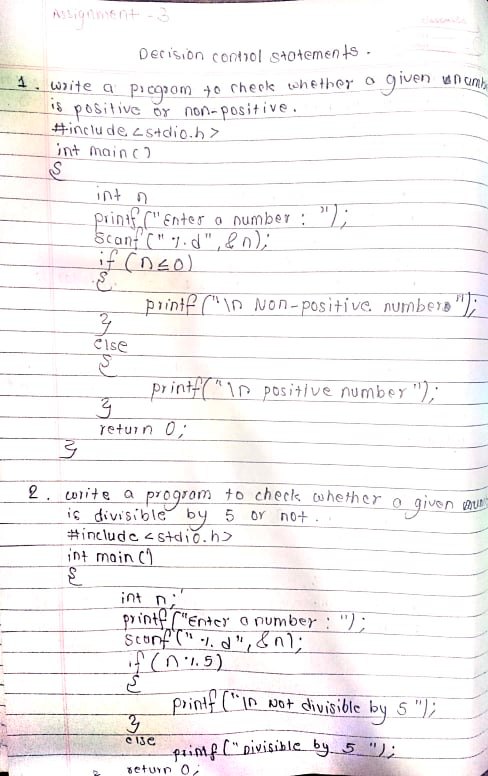 Assignment - 3
Decision control statements.
1. write a program to check whether a given numbe
is positive or non-positive.
#include <stdio.h>
int main()
{
int n
printf("Enter a number : ");
scanf("%d", &n);
if (n≤0)
{
printf("\n Non-positive number");
}
else
{
printf("\n positive number");
}
return 0;
}
2. write a program to check whether a given num
is divisible by 5 or not.
#include <stdio.h>
int main()
{
int n;
printf("Enter a number : ");
scanf("%d", &n);
if (n%5)
{
printf("\n Not divisible by 5");
}
else
printf("Divisible by 5");
return 0;